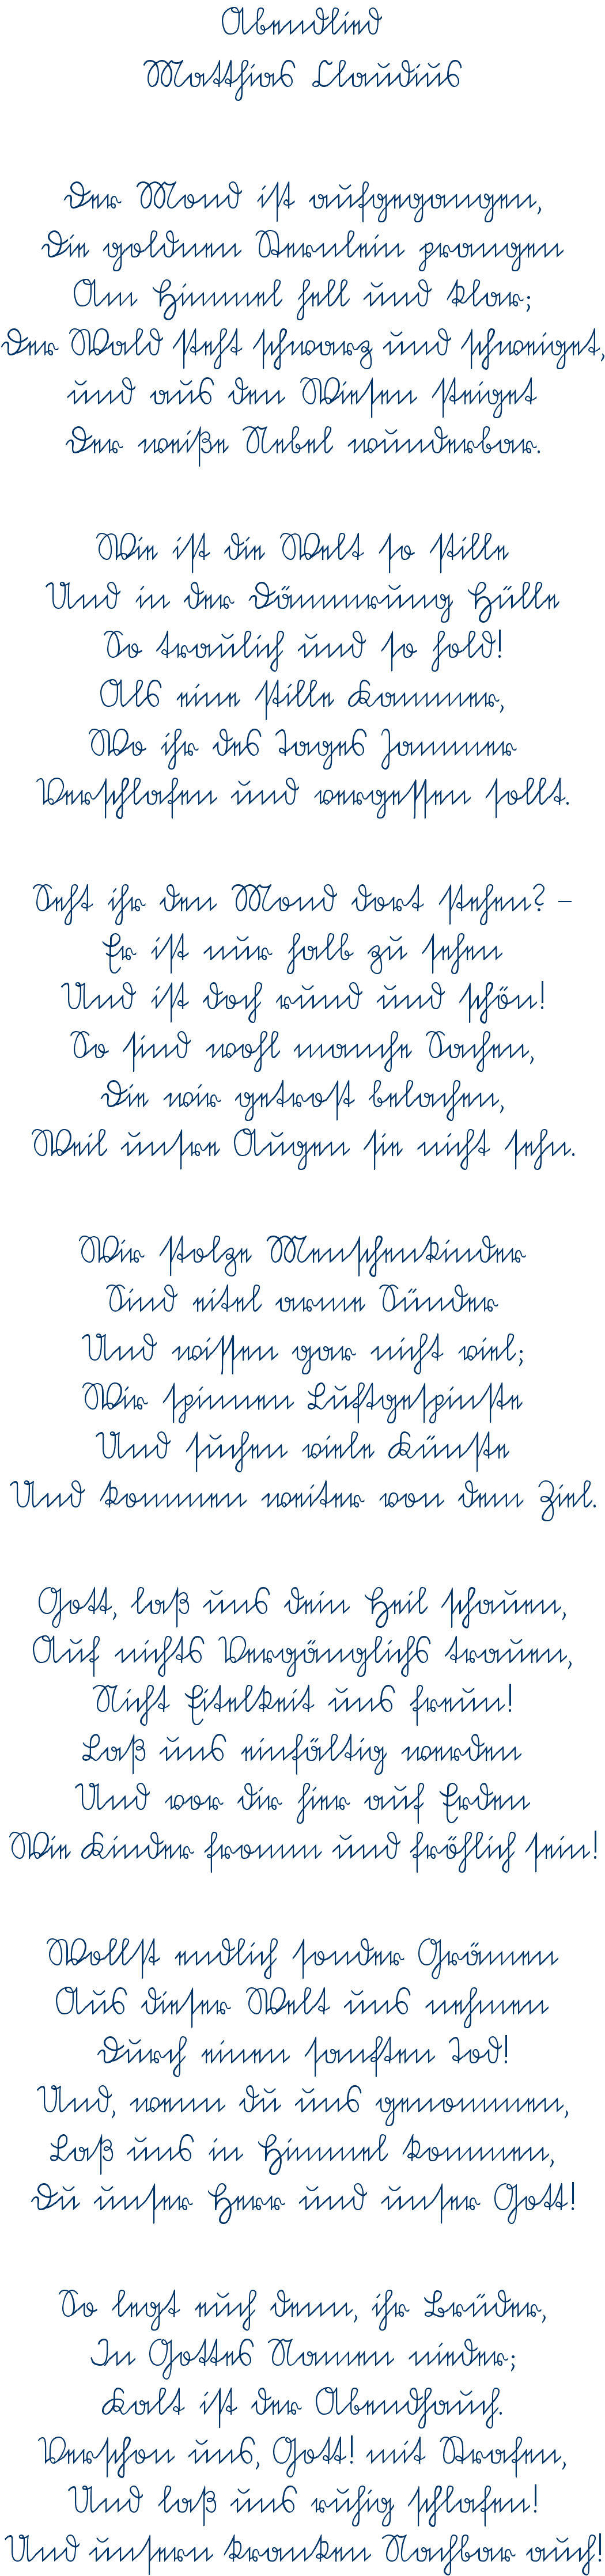 Abendlied
Matthias Claudius
Der Mond ist aufgegangen,
Die goldnen Sternlein prangen
Am Himmel hell und klar;
Der Wald steht schwarz und schweiget,
und aus den Wiesen steiget
Der weiße Nebel wunderbar.
Wie ist die Welt so stille
Und in der Dämmrung Hülle
So traulich und so hold!
Als eine stille Kammer,
Wo ihr des Tages Jammer
Verschlafen und vergessen sollt.
Seht ihr den Mond dort stehen? –
Er ist nur halb zu sehen
Und ist doch rund und schön!
So sind wohl manche Sachen,
Die wir getrost belachen,
Weil unsre Augen sie nicht sehn.
Wir stolze Menschenkinder
Sind eitel arme Sünder
Und wissen gar nicht viel;
Wir spinnen Luftgespinste
Und suchen viele Künste
Und kommen weiter von dem Ziel.
Gott, laß uns dein Heil schauen,
Auf nichts Vergänglichs trauen,
Nicht Eitelkeit uns freun!
Laß uns einfältig werden
Und vor dir hier auf Erden
Wie Kinder fromm und fröhlich sein!
Wollst endlich sonder Grämen
Aus dieser Welt uns nehmen
Durch einen sanften Tod!
Und, wenn du uns genommen,
Laß uns in Himmel kommen,
Du unser Herr und unser Gott!
So legt euch denn, ihr Brüder,
In Gottes Namen nieder;
Kalt ist der Abendhauch.
Verschon uns, Gott! mit Strafen,
Und laß uns ruhig schlafen!
Und unsern kranken Nachbar auch!